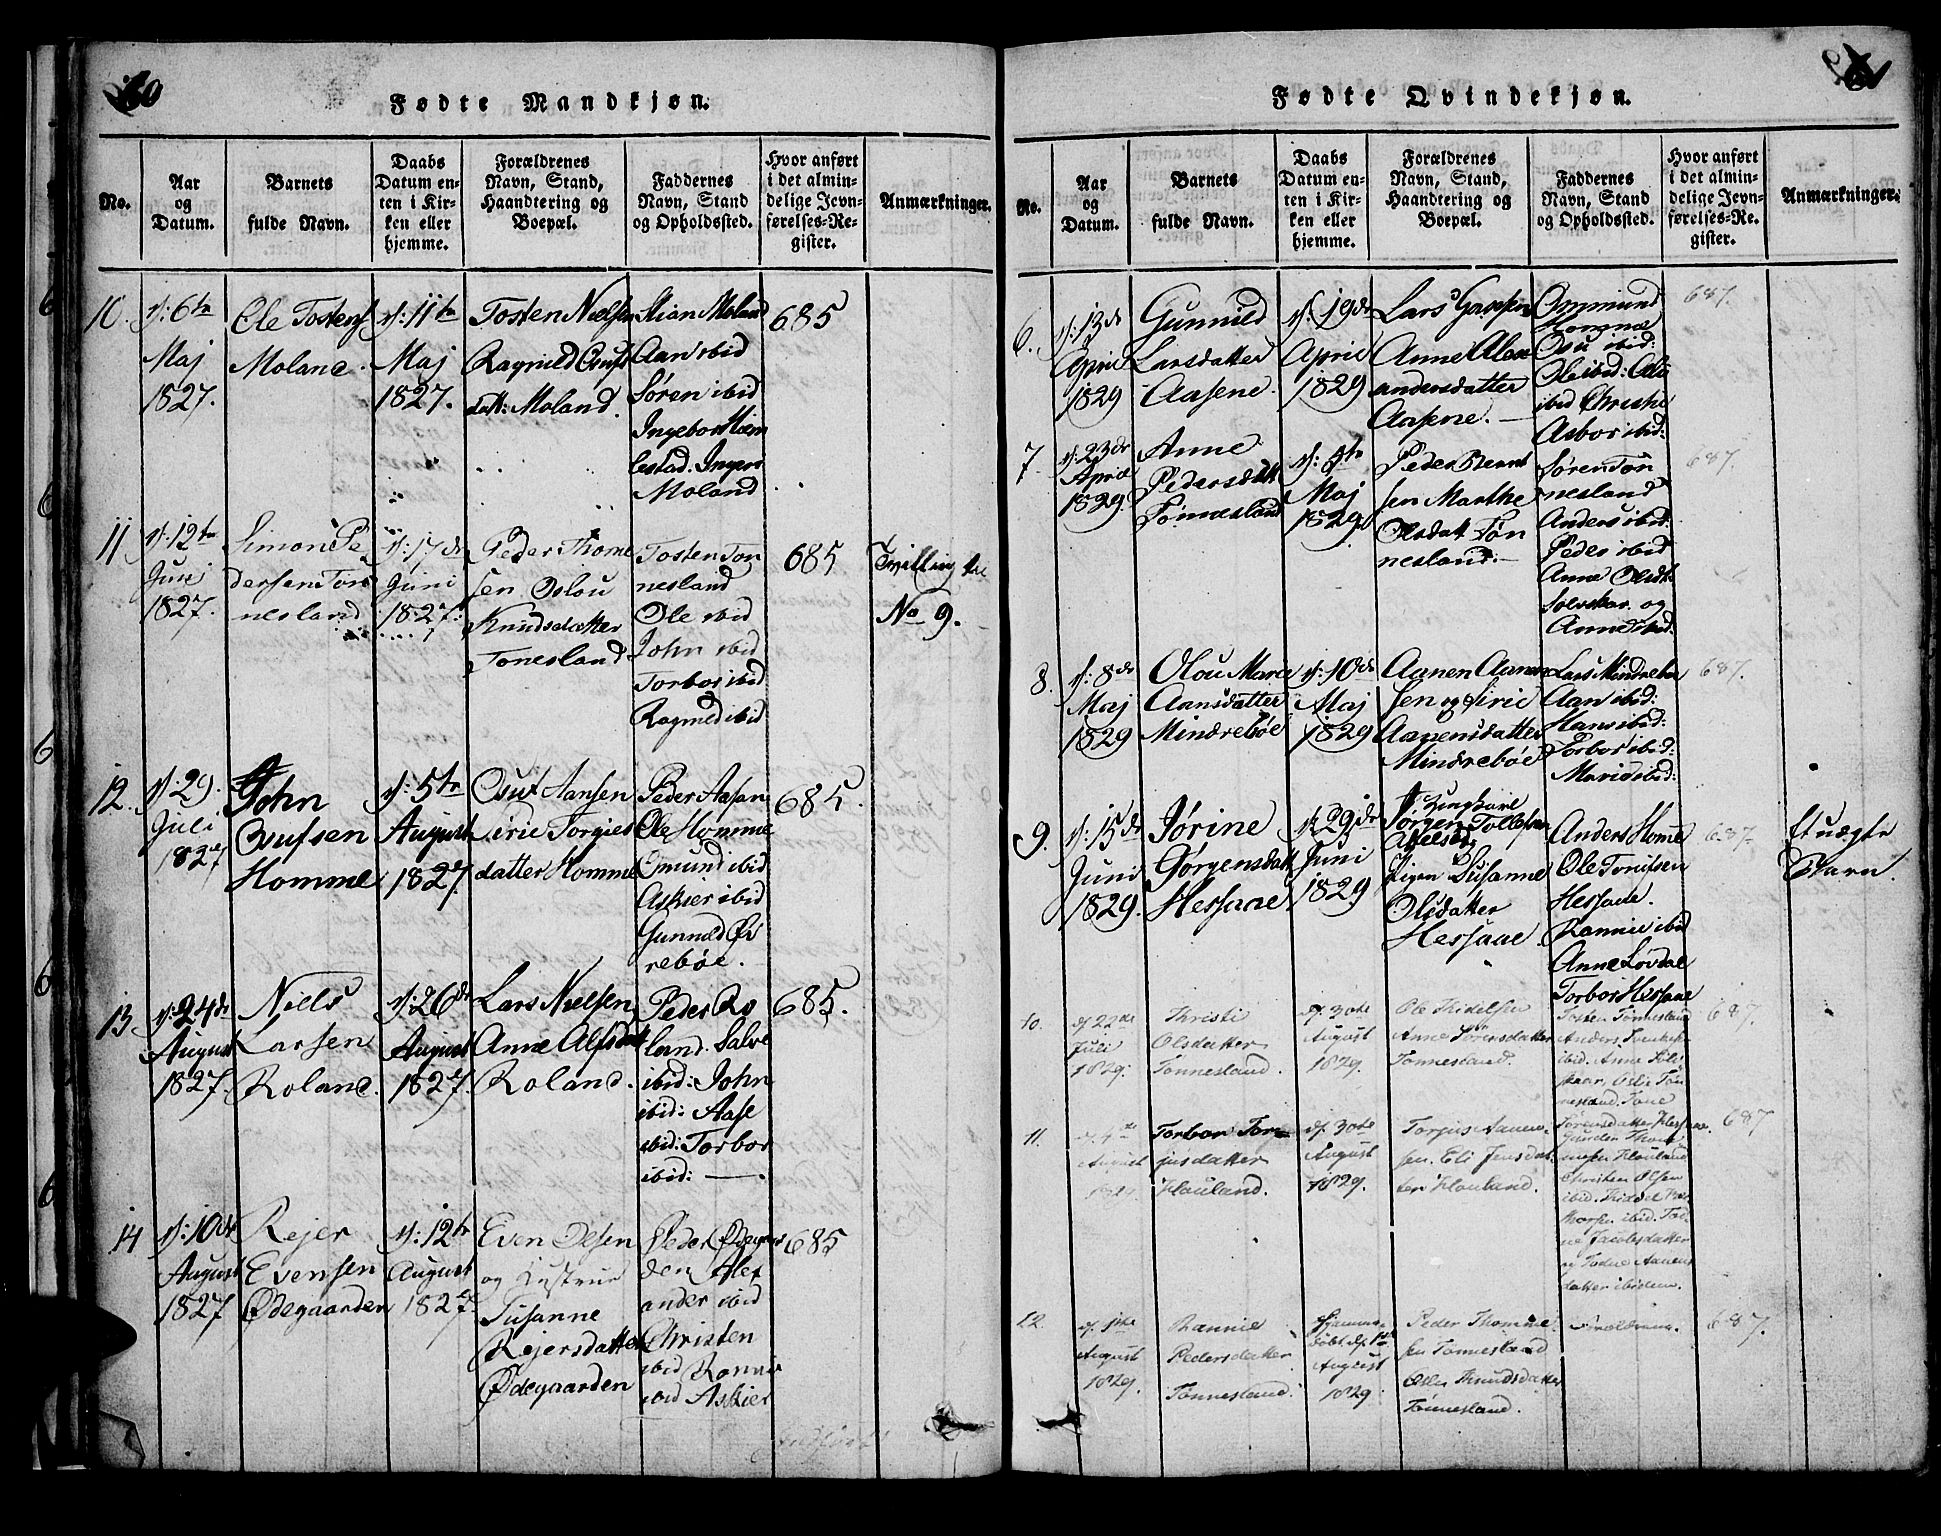 60
Fødte Mandkjøn.
No.
Aar
og
Datum.
Barnets
fulde Navn.
Daabs
Datum en-
ten i Kir-
ken eller
hjemme.
Forældrenes
Navn, Stand,
Haandtering og
Boepæl.
Faddernes
Navn, Stand
og Opholdssted.
Hvor anført
i det almin-
delige Jevn-
førelses-Re-
gister.
Anmærkninger.
10.
d: 6te
Maj
1827.
Ole Tostens
Moland.
d: 11te
Maj
1827.
Tosten Nielsen
Ragnild
datt: Moland.
Stian Moland
Aan ibid
Søren ibid
Ingebor Hæm
lestad. Inger
Moland
685
11
d: 12te
Juni
1827.
Simon Pe
dersen Tøn
nesland
d: 17de
Juni
1827.
Peder Thome
sen Oslou
Knudsdatter
Tonesland
Tosten Ton
nesland
Ole ibid
John ibid
Torbor ibid
Ragnild ibid
685
Tvilling til
No 9.
12.
d: 29.
Juli
1827
John
Osufsen
Homme
d: 5te
August
1827
Osuf Aansen
Sirie Torgies
datter Homme
Peder Aasan
Ole Homme
Omund ibid
Askier ibid
Gunnild Øv
rebøe.
685.
13
d: 24de
August
1827.
Niels
Larsen
Roland.
d: 26de
August
1827
Lars Nielsen
Anne Alfsdatt
Roland.
Peder Ro
land. Salve
ibid: John
ibid: Aase
ibid: Torbor
ibid: —
685.
14
d: 10de
August
1827
Rejer
Evensen
Ødegaarden
d: 12te
August
1827.
Even Olsen
og Hustrue
Susanne
Rejersdatter
Ødegaarden
Peder Ødegaar
den Alex
ander ibid
Christen
ibid Rannie
ibid Askier
685
Fødte Qvindekjøn.
No.
Aar
og
Datum.
Barnets
fulde Navn.
Daabs
Datum en-
ten i Kir-
ken eller
hjemme.
Forældrenes
Navn, Stand,
Haandtering og
Boepæl.
Faddernes
Navn, Stand
og Opholdssted.
Hvor anført
i det almin-
delige Jevn-
førelses-Re-
gister.
Anmærkninger.
6.
d: 13de
April
1829
Gunnild
Larsdatter
Aasene.
d: 19de
April
1829
Lars
Anne Alex
andersdatter
Aasene. —
Ommund
Osu ibid:
Ole ibid:
ibid Christie
Asbor ibid:
687.
7
d: 23de
April
1829
Anne
Pedersdatt
Tønnesland
d: 5te
Maj
1829.
Peder Bernt
sen Marthe
Olsdatt Tøn
nesland. —
Søren Tøn
nesland
Anders ibid:
Peder ibid
Anne Olsdt
og
Anne ibid:
687.
8.
d: 8de
Maj
1829
Olou Marie
Aansdatter
Mindrebøe
d: 10de
Maj
1829
Aanen Aanen
sen og Sirie
Aanensdatter
Mindrebøe
Lars Mindrebøe
Aan ibid:
Hans ibid:
Torbor ibid:
Marie ibid:
687.
9.
d: 15de
Juni
1829.
Jørine
Jørgensdatt
Hessaae
d: 29de
Juni
1829
Ungkarl
Jørgen Tollefsen
Pigen Susanne
Olsdatter
Hessaae.
Anders Homme
Ole Torufsen
Hessaae.
Rannie ibid
Anne Løvdal
Torbor Hessaae
687.
Et uægte
Barn.
10.
d. 22de
Juli
1829.
Christi
Olsdatter
Tønnesland.
d. 30te
August
1829.
Ole Tridelsen
Anne Sørensdatter
Tønnesland.
Tosten Tønnesland
Anders
ibid. Anne
Tøn
nesland. Tone
687.
11.
d. 4de
August
1829.
Torbor Tor-
jusdatter
Houland.
d. 30te
August
1829.
Torjus Aanen-
sen. Eli Jensdat-
ter Houland.
Hessaae.
Gunder Thom
mesen Houland
Christen Olsen
ibid.
ibid. Tod-
ne Jacobsdatter
og Todne Aanens
datter ibidem.
687.
12.
d. 1ste
August
1829.
Rannie
Pedersdatter
Tønnesland.
Hjemme-
døbt d. 1ste
August
1829.
Peder Thomme
sen Tønnesland
Oslu Knudsdatter
Tønnesland.
Forældrene.
687.